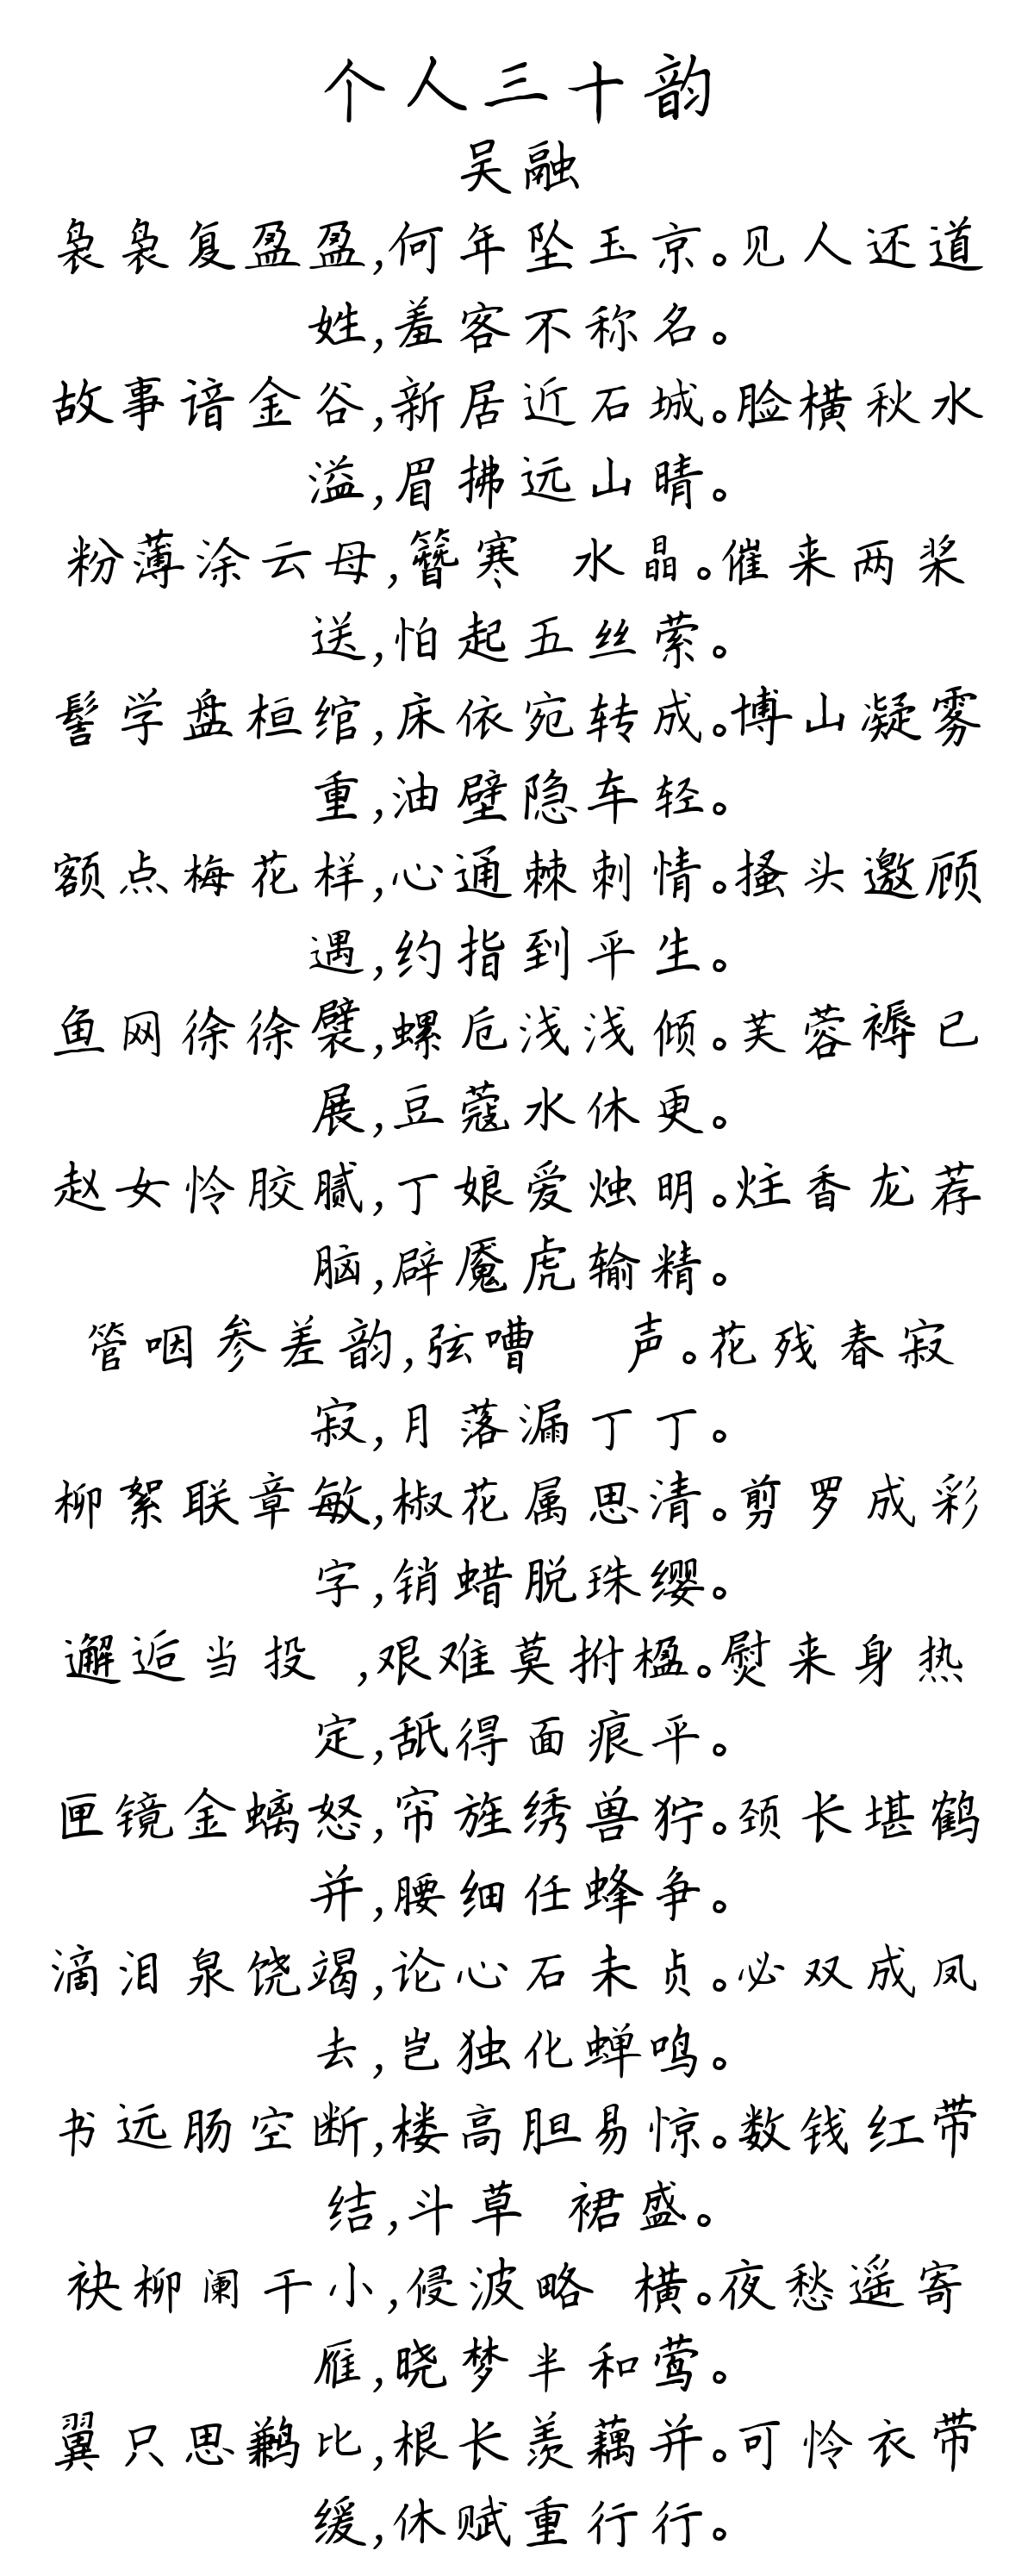 个人三十韵
吴融
袅袅复盈盈,何年坠玉京。见人还道
姓,羞客不称名。
故事谙金谷,新居近石城。脸横秋水
溢,眉拂远山晴。
粉薄涂云母,簪寒 水晶。催来两桨
送,怕起五丝萦。
髻学盘桓绾,床依宛转成。博山凝雾
重,油壁隐车轻。
额点梅花样,心通棘刺情。搔头邀顾
遇,约指到平生。
鱼网徐徐襞,螺卮浅浅倾。芙蓉褥已
展,豆蔻水休更。
赵女怜胶腻,丁娘爱烛明。炷香龙荐
脑,辟魇虎输精。
管咽参差韵,弦嘈 声。花残春寂
寂,月落漏丁丁。
柳絮联章敏,椒花属思清。剪罗成彩
字,销蜡脱珠缨。
邂逅当投 ,艰难莫拊楹。熨来身热
定,舐得面痕平。
匣镜金螭怒,帘旌绣兽狞。颈长堪鹤
并,腰细任蜂争。
滴泪泉饶竭,论心石未贞。必双成凤
去,岂独化蝉鸣。
书远肠空断,楼高胆易惊。数钱红带
结,斗草 裙盛。
袂柳阑干小,侵波略 横。夜愁遥寄
雁,晓梦半和莺。
翼只思鹣比,根长羡藕并。可怜衣带
缓,休赋重行行。